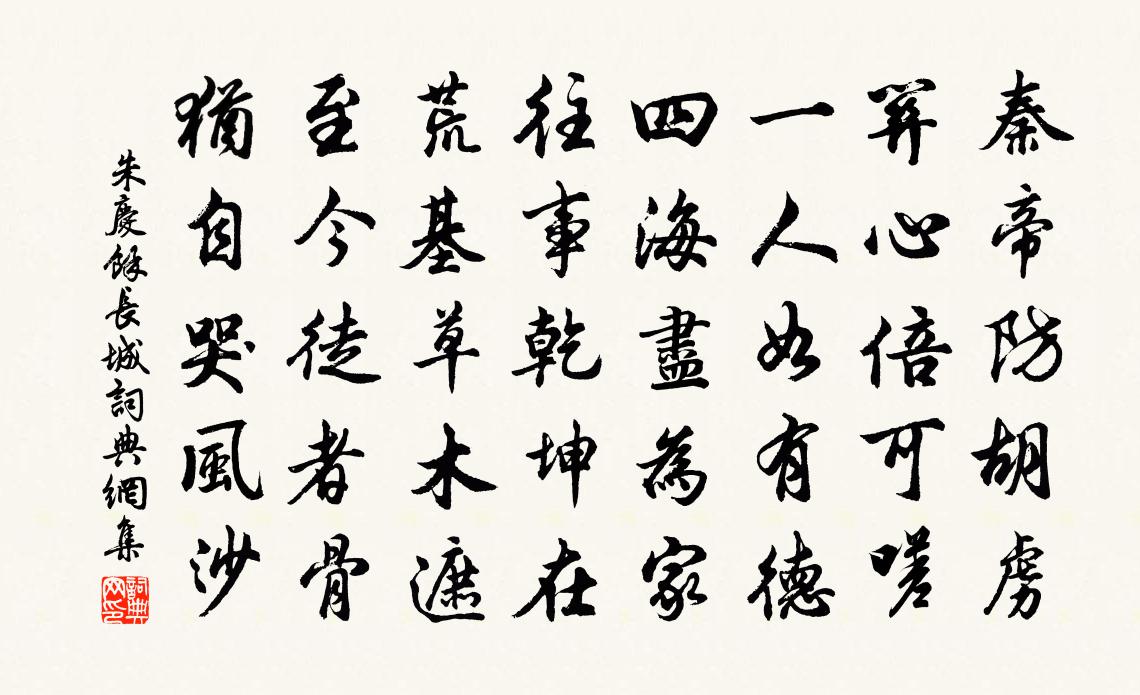 秦帝防胡虜
關心倍可嗟
一人如有德
四海盡為家
往事乾坤在
荒基草木遮
至今徒者骨
猶自哭風沙
朱慶餘長城詞典網集
詞典網印